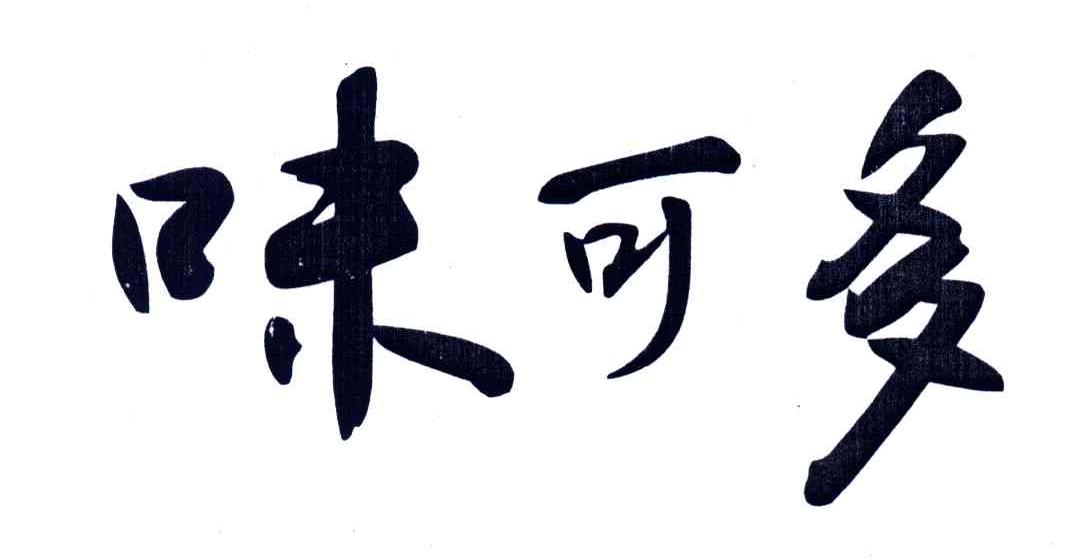 味可多